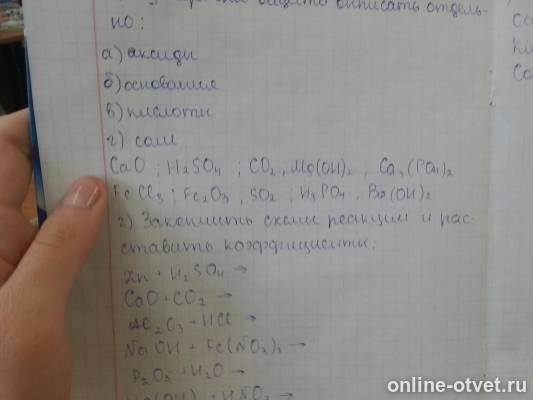 вещества выписать отдель-
но:
а) оксиды
б) основание
в) кислоты
г) соли
CaO ; H₂SO₄ ; CO₂, Mg(OH)₂ ; Ca₃(PO₄)₂
FeCl₃ ; Fe₂O₃, SO₂ ; H₃PO₄, Ba(OH)₂
2) Закончить схемы реакций и рас-
ставить коэффициенты:
Zn + H₂SO₄ →
CaO + CO₂ →
Al₂O₃ + HCl →
NaOH + Fe(NO₃)₃ →
P₂O₅ + H₂O →
online-otvet.ru